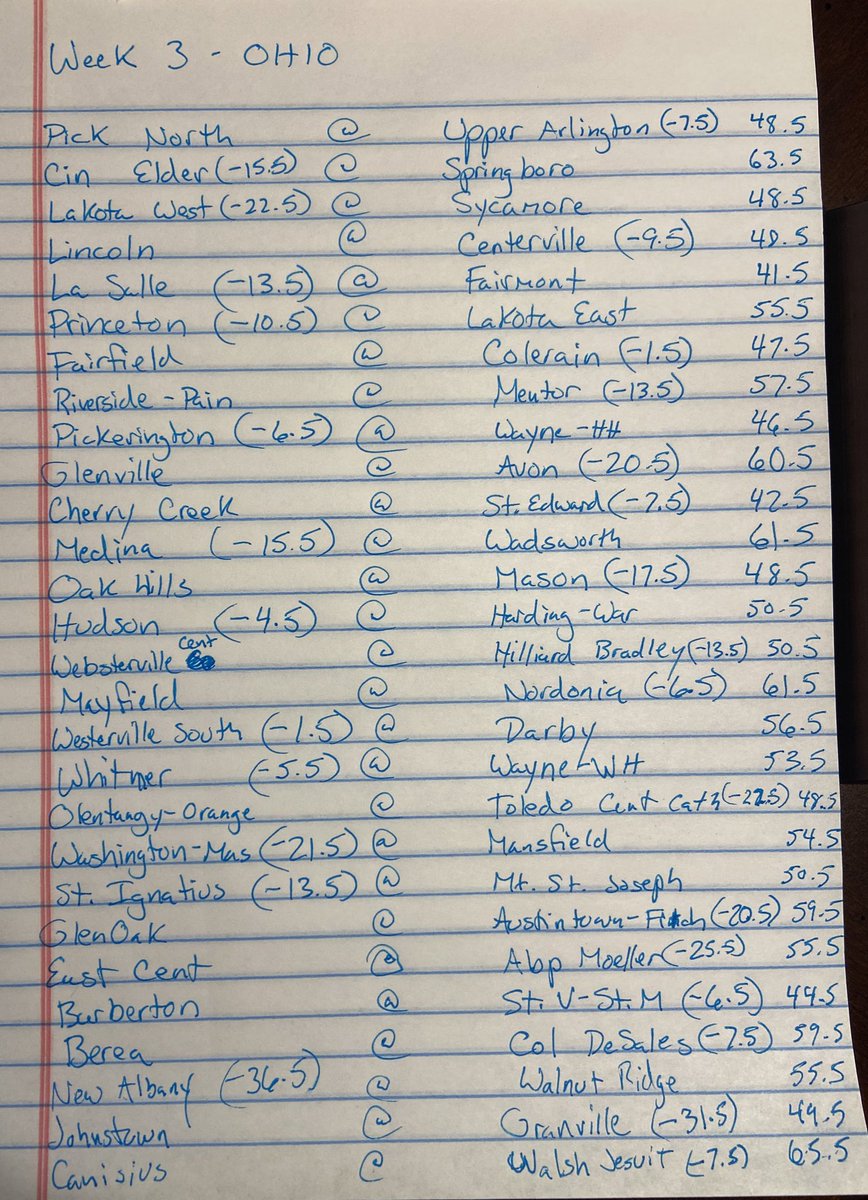 Week 3 - OHIO
Pick North @ Upper Arlington (-7.5) 48.5
Cin Elder (-15.5) @ Springboro 63.5
Lakota West (-22.5) @ Sycamore 48.5
Lincoln @ Centerville (-9.5) 48.5
La Salle (-13.5) @ Fairmont 41.5
Princeton (-10.5) @ Lakota East 55.5
Fairfield @ Colerain (-1.5) 47.5
Riverside - Pain @ Mentor (-13.5) 57.5
Pickerington (-6.5) @ Wayne-HH 46.5
Glenville @ Avon (-20.5) 60.5
Cherry Creek @ St. Edward (-7.5) 42.5
Medina (-15.5) @ Wadsworth 61.5
Oak Hills @ Mason (-17.5) 48.5
Hudson (-4.5) @ Harding-War 50.5
Websterville Cent @ Hilliard Bradley (-13.5) 50.5
Mayfield @ Nordonia (-6.5) 61.5
Westerville South (-1.5) @ Darby 56.5
Whitmer (-5.5) @ Wayne-WH 53.5
Olentangy-Orange @ Toledo Cent Cath 48.5
Washington-Mas (-21.5) @ Mansfield 54.5
St. Ignatius (-13.5) @ Mt. St. Joseph 50.5
GlenOak @ Austintown-Fitch (-20.5) 59.5
East Cent @ Abp Moeller (-25.5) 55.5
Burberton @ St. V-St. M (-6.5) 49.5
Berea @ Col DeSales (-7.5) 59.5
New Albany (-36.5) @ Walnut Ridge 55.5
Johnstown @ Granville (-31.5) 49.5
Canisius @ Walsh Jesuit (-7.5) 65.5